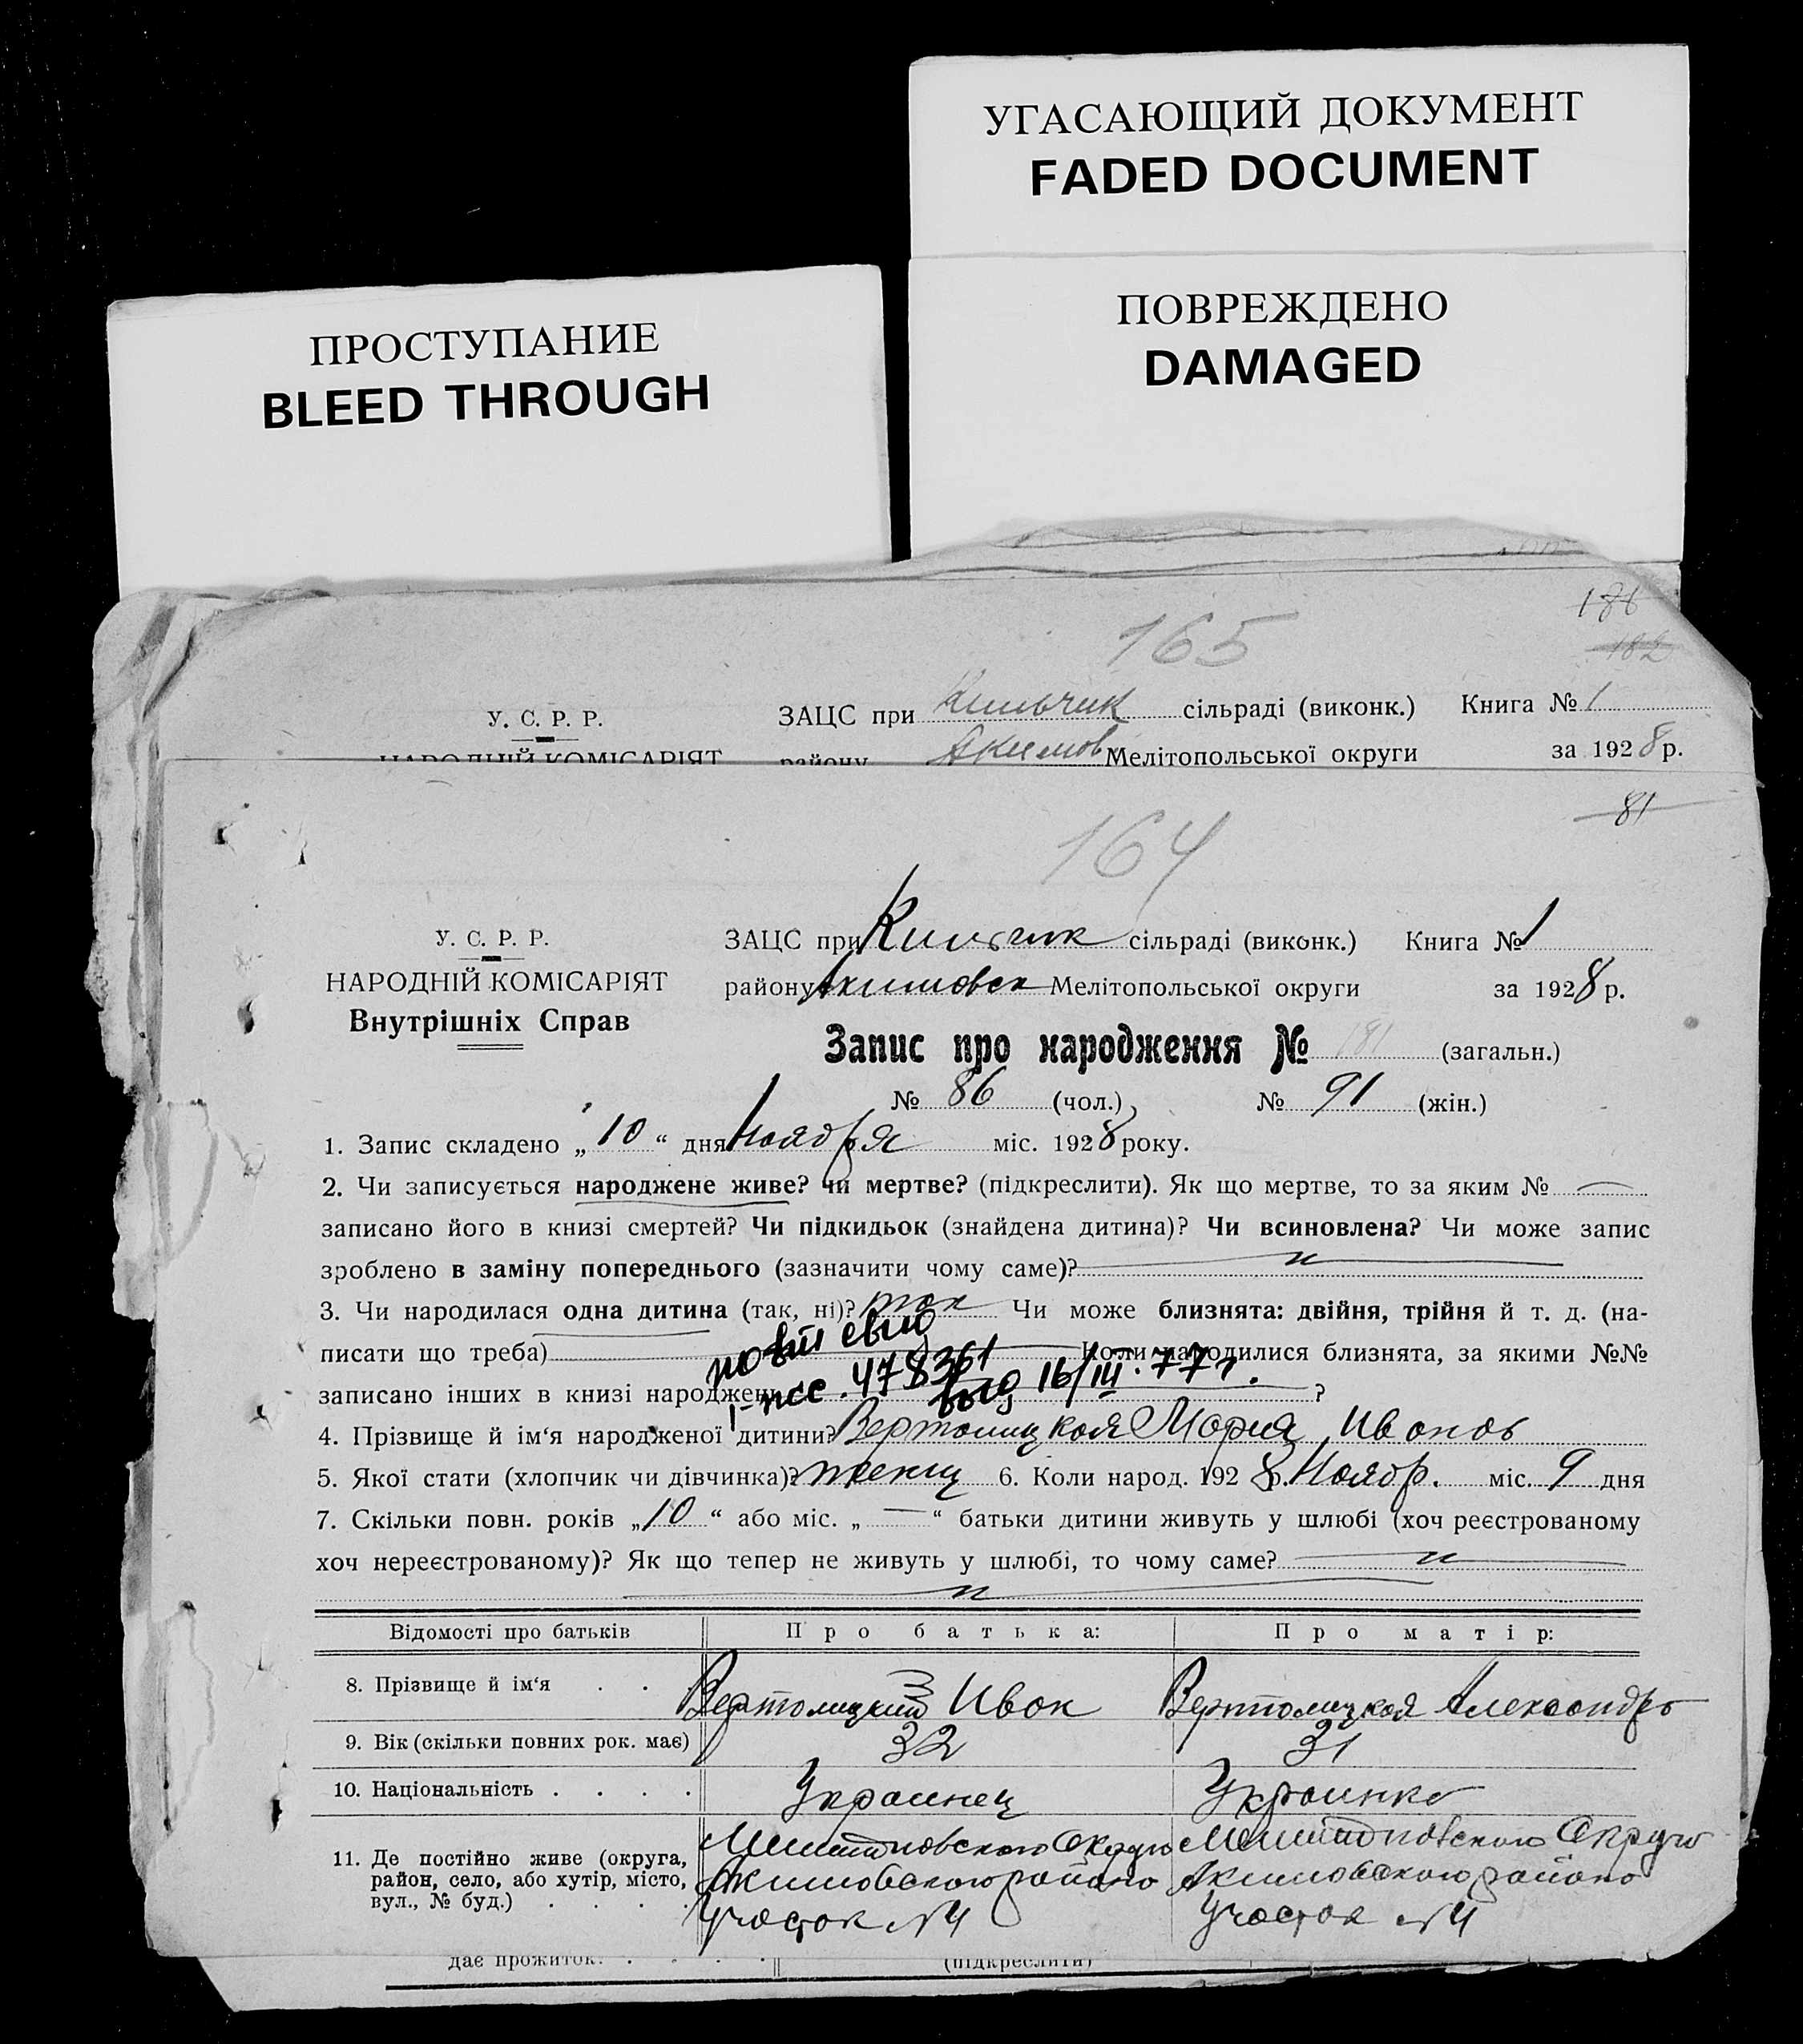 УГАСАЮЩИЙ ДОКУМЕНТ
FADED DOCUMENT
ПОВРЕЖДЕНО
DAMAGED
ПРОСТУПАНИЕ
BLEED THROUGH
186
182
165
У. С. Р. Р. ЗАЦС при Кильчик сільраді (виконк.) Книга № 1
НАРОДНІЙ КОМІСАРІЯТ району Акимов Мелітопольської округи за 1928 р.
81
164
У. С. Р. Р. ЗАЦС при Кильчик сільраді (виконк.) Книга № 1
НАРОДНІЙ КОМІСАРІЯТ району Акимовск Мелітопольської округи за 1928 р.
Внутрішніх Справ
Запис про народження № 181 (загальн.)
№ 86 (чол.) № 91 (жін.)
1. Запис складено „10“ дня Ноября міс. 1928 року.
2. Чи записується народжене живе? чи мертве? (підкреслити). Як що мертве, то за яким № —
записано його в книзі смертей? Чи підкидьок (знайдена дитина)? Чи всиновлена? Чи може запис
зроблено в заміну попереднього (зазначити чому саме)?
3. Чи народилася одна дитина (так, ні)? так Чи може близнята: двійня, трійня й т. д. (на-
писати що треба) Коли народилися близнята, за якими №№
повт свид
записано інших в книзі народжень ?
478361 выд 16/III. 77г.
4. Прізвище й ім‘я народженої дитини? Вертолицкая Мария Иванов
5. Якої стати (хлопчик чи дівчинка)? женщ 6. Коли народ. 1928 р. Ноябр. міс. 9 дня
7. Скільки повн. років „10“ або міс. „—“ батьки дитини живуть у шлюбі (хоч реєстрованому
хоч нереєстрованому)? Як що тепер не живуть у шлюбі, то чому саме?
Відомості про батьків Про батька: Про матір:
8. Прізвище й ім‘я . . . Вертолицкий Иван Вертолицкая Александра
9. Вік (скільки повних рок. має) 32 31
10. Національність . . . . Украинец Украинка
11. Де постійно живе (округа, Мелитоповского Округа Мелитоповского Округа
район, село, або хутір, місто, Акимовского района Акимовского района
вул., № буд.) . . . . Участок №4 Участок №4
дає прожиток. . . . . (підкреслити)